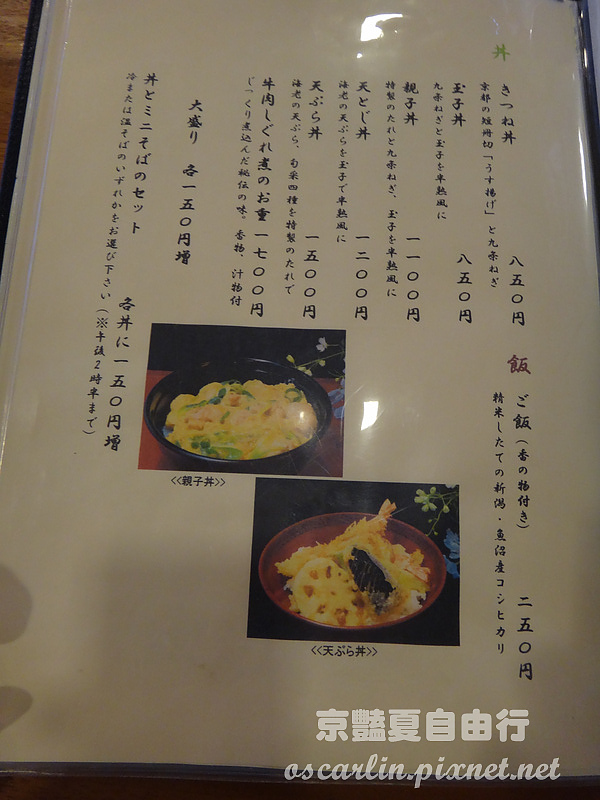 丼
きつね丼 八五〇円
京都の短冊切「うす揚げ」と九条ねぎ
玉子丼 八五〇円
九条ねぎと玉子を半熟風に
親子丼 一一〇〇円
特製のたれと九条ねぎ、玉子を半熟風に
天とじ丼 一二〇〇円
海老の天ぷらを玉子で半熟風に
天ぷら丼 一五〇〇円
海老の天ぷら、旬菜四種を特製のたれで
牛肉しぐれ煮のお重 一七〇〇円
じっくり煮込んだ秘伝の味。香物、汁物付
大盛り 各一五〇円増
丼とミニそばのセット 各丼に一五〇円増
冷または温そばのいずれかをお選び下さい(※午後2時半まで)
飯
ご飯(香の物付き) 二五〇円
精米したての新潟・魚沼産コシヒカリ
<<親子丼>>
<<天ぷら丼>>
京豔夏自由行
oscarlin.pixnet.net